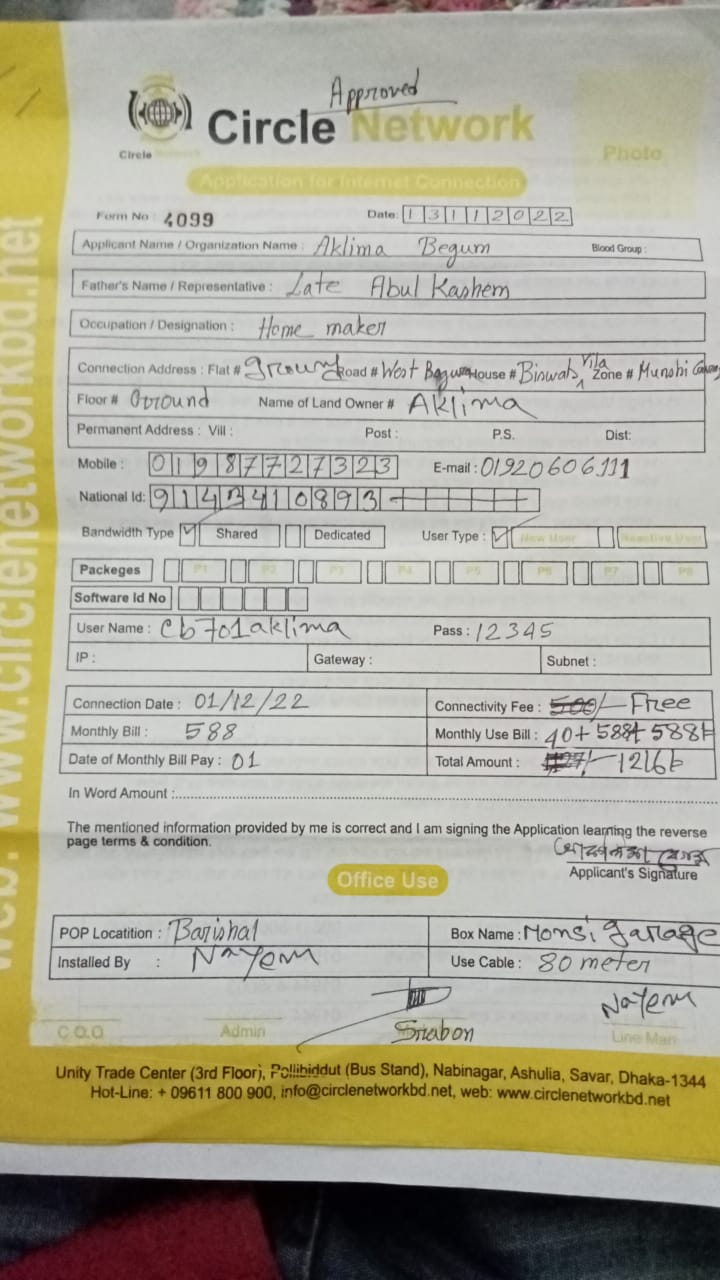 Approved
Circle Network
Circle Network
Photo
Application for Internet Connection
Form No : 4099 Date: 13112022
Applicant Name / Organization Name : Aklima Begum Blood Group :
Father's Name / Representative : Late Abul Kashem
Occupation / Designation : Home maker
Connection Address : Flat # ground Road # West Bagura House # Biswas Vila Zone # Munshi
Floor # Ground Name of Land Owner # Aklima
Permanent Address : Vill : Post : P.S. Dist:
Mobile : 01987727323 E-mail : 01920606111
National Id:
Bandwidth Type Shared Dedicated User Type : New User Reactive User
Packeges P1 P2 P3 P4 P5 P6 P7 P8
Software Id No
User Name : cb701aklima Pass : 12345
IP : Gateway : Subnet :
Connection Date : 01/12/22 Connectivity Fee : 500/- Free
Monthly Bill : 588 Monthly Use Bill : 40+ 588+ 588
Date of Monthly Bill Pay : 01 Total Amount : 1216
In Word Amount :
The mentioned information provided by me is correct and I am signing the Application learning the reverse
page terms & condition.
Applicant's Signature
Office Use
POP Locatition : Barishal Box Name : Monsi garage
Installed By : Nayem Use Cable : 80 meter
Nayem
Shabon
C O O Admin Line Man
Unity Trade Center (3rd Floor), Pollibiddut (Bus Stand), Nabinagar, Ashulia, Savar, Dhaka-1344
Hot-Line: + 09611 800 900, info@circlenetworkbd.net, web: www.circlenetworkbd.net
web: www.circlenetworkbd.net